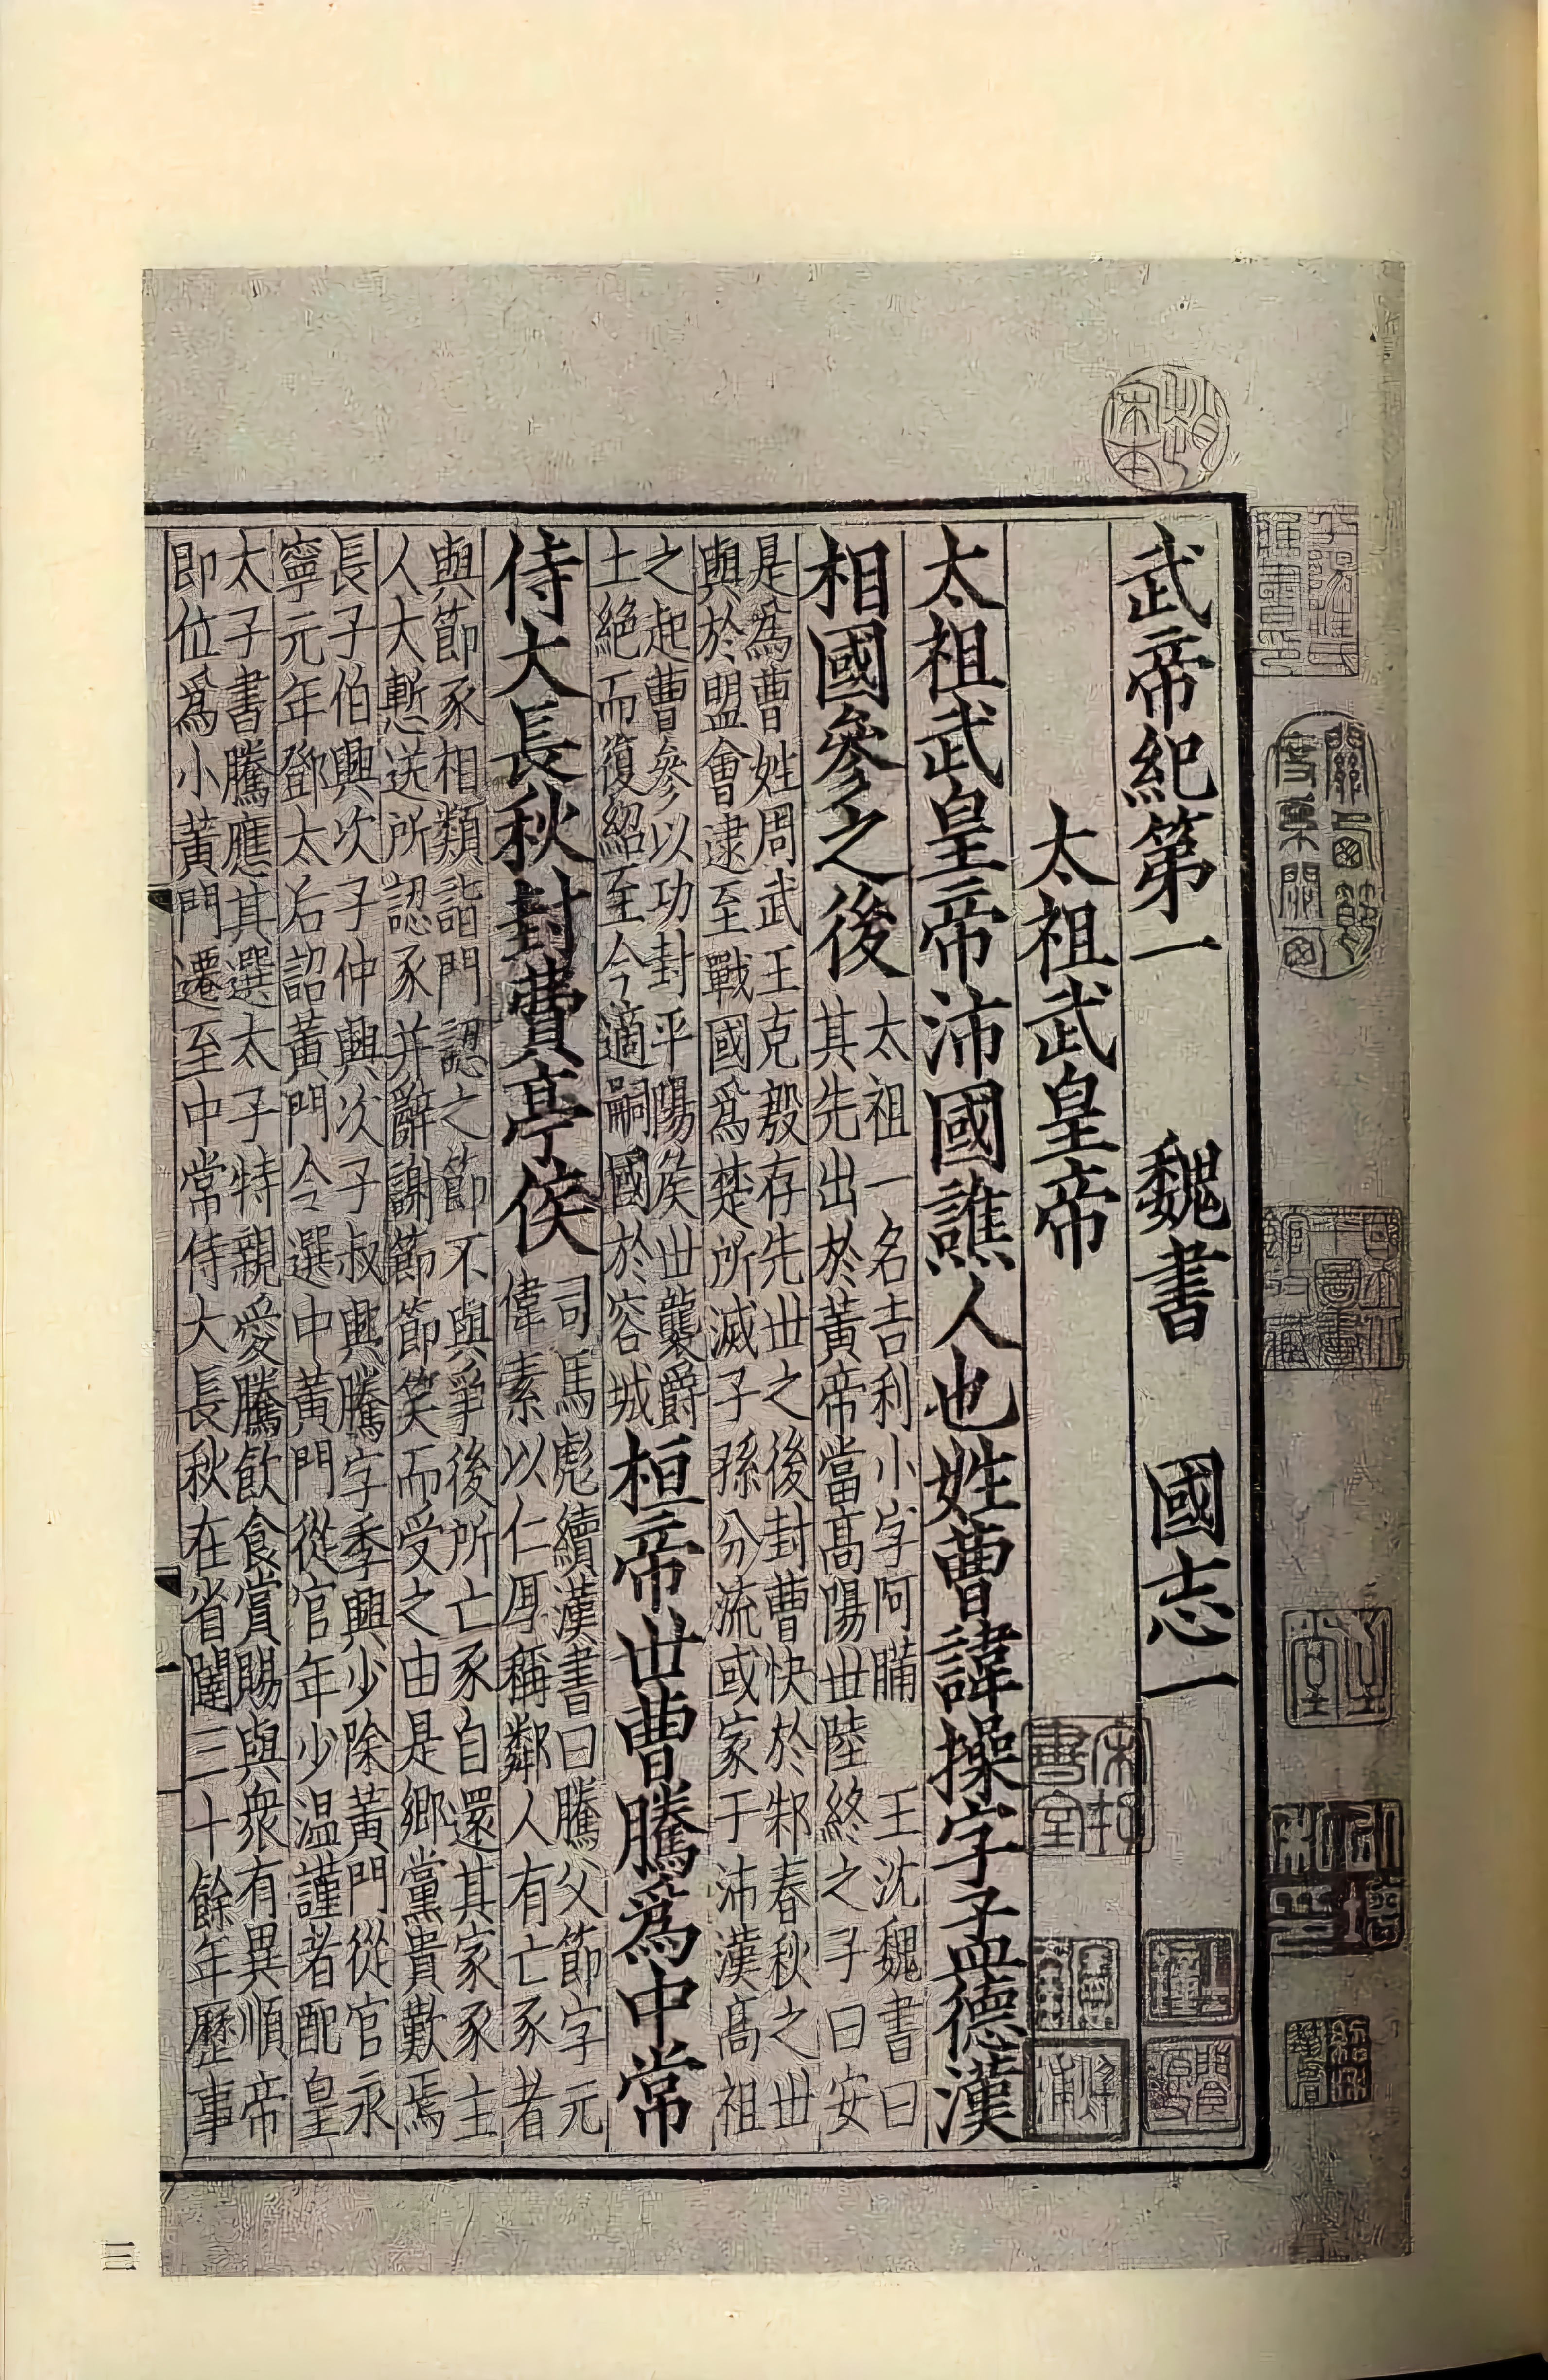 武帝紀第一 魏書 國志一
太祖武皇帝
太祖武皇帝沛國譙人也姓曹諱操字孟德漢
相國參之後
太祖一名吉利小字阿瞞 王沈魏書曰
其先出於黃帝當高陽世陸終之子曰安
是爲曹姓周武王克殷存先世之後封曹快於邾春秋之世
與於盟會逮至戰國爲楚所滅子孫分流或家于沛漢高祖
之起曹參以功封平陽侯世襲爵
土絕而復紹至今適嗣國於容城
桓帝世曹騰爲中常
侍大長秋封費亭侯
司馬彪續漢書曰騰父節字元
偉素以仁厚稱鄰人有亡豕者
與節豕相類詣門認之節不與爭後所亡豕自還其家豕主
人大慙送所認豕并辭謝節節笑而受之由是鄉黨貴歎焉
長子伯興次子仲興次子叔興騰字季興少除黃門從官永
寧元年鄧太后詔黃門令選中黃門從官年少温謹者配皇
太子書騰應其選太子特親愛騰飲食賞賜與衆有異順帝
即位爲小黃門遷至中常侍大長秋在省闥三十餘年歷事
三